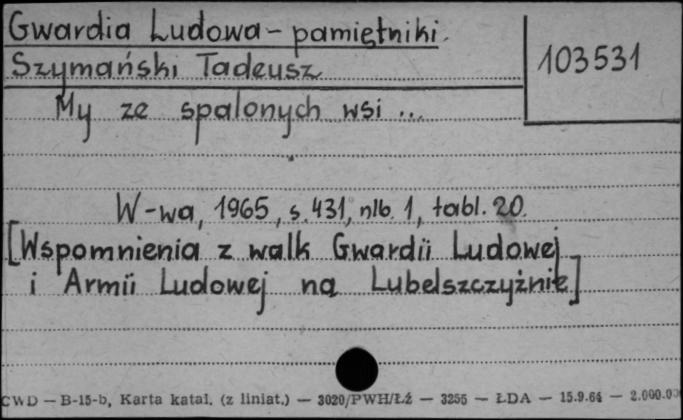 Gwardia Ludowa - pamiętniki
103531
Szymański Tadeusz
My ze spalonych wsi ...
W-wa, 1965, s. 431, nlb. 1, tabl. 20.
[Wspomnienia z walk Gwardii Ludowej
i Armii Ludowej na Lubelszczyźnie]
CWD — B-15-b, Karta katal. (z liniat.) — 3020/PWH/Łź — 3256 — ŁDA — 15.9.64 — 2.000.00